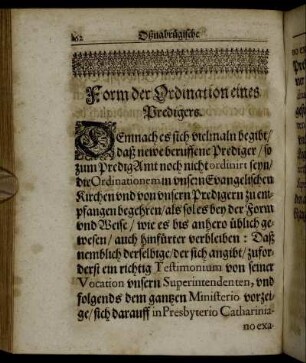 62 Oßnabrügische
Form der Ordination eines
Predigers.
DEmnach es sich vielmaln begibt/
daß newe beruffene Prediger / so
zum PredigAmt noch nicht ordinirt seyn/
die Ordinationem in vnsern Evangelischen
Kirchen vnd von vnsern Predigern zu em-
pfangen begehren / als sol es bey der Form
vnd Weise / wie es bis anhero üblich ge-
wesen / auch hinfürter verbleiben : Daß
nemblich derselbige / der sich angibt / zufor-
derst ein richtig Testimonium von seiner
Vocation vnserm Superintendenten, vnd
folgends dem gantzen Ministerio vorzei-
ge / sich darauff in Presbyterio Catharinia-
no exa-